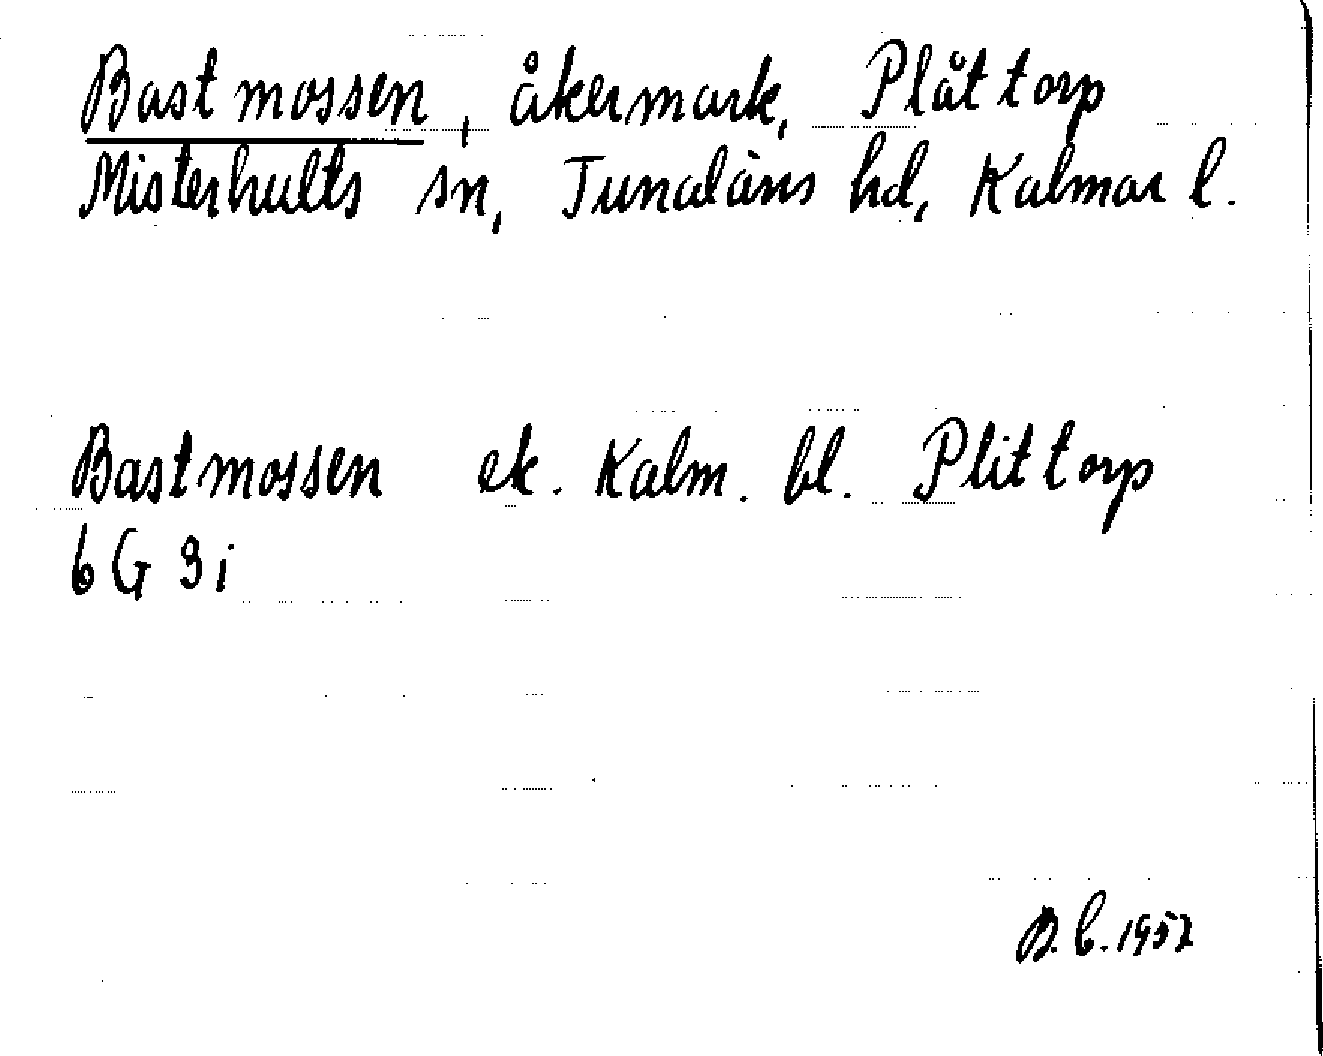 Bastmossen, åkermark, Plåttorp
Misterhults sn, Tunaläns hd, Kalmar l.
Bastmossen ek. Kalm. bl. Plittorp
6G 9i
B.C. 1957